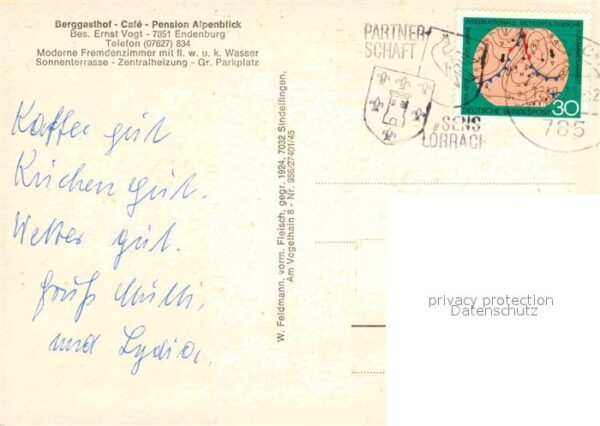 Berggasthof - Café - Pension Alpenblick
Bes. Ernst Vogt - 7851 Endenburg
Telefon (07627) 834
Moderne Fremdenzimmer mit fl. w. u. k. Wasser
Sonnenterrasse - Zentralheizung - Gr. Parkplatz
Kaffee gut
Kuchen gut.
Wetter gut.
Gruß Mutti,
und Lydia.
W. Feldmann, vorm. Fleisch, gegr. 1924, 7032 Sindelfingen,
Am Vogelhain 8 - Nr. 956/27401/43
PARTNER
SCHAFT
SENS
LÖRRACH
785
INTERNATIONALE METEOROLOGISCHE
ZUSAMMENARBEIT
DEUTSCHE BUNDESPOST
30
privacy protection
Datenschutz